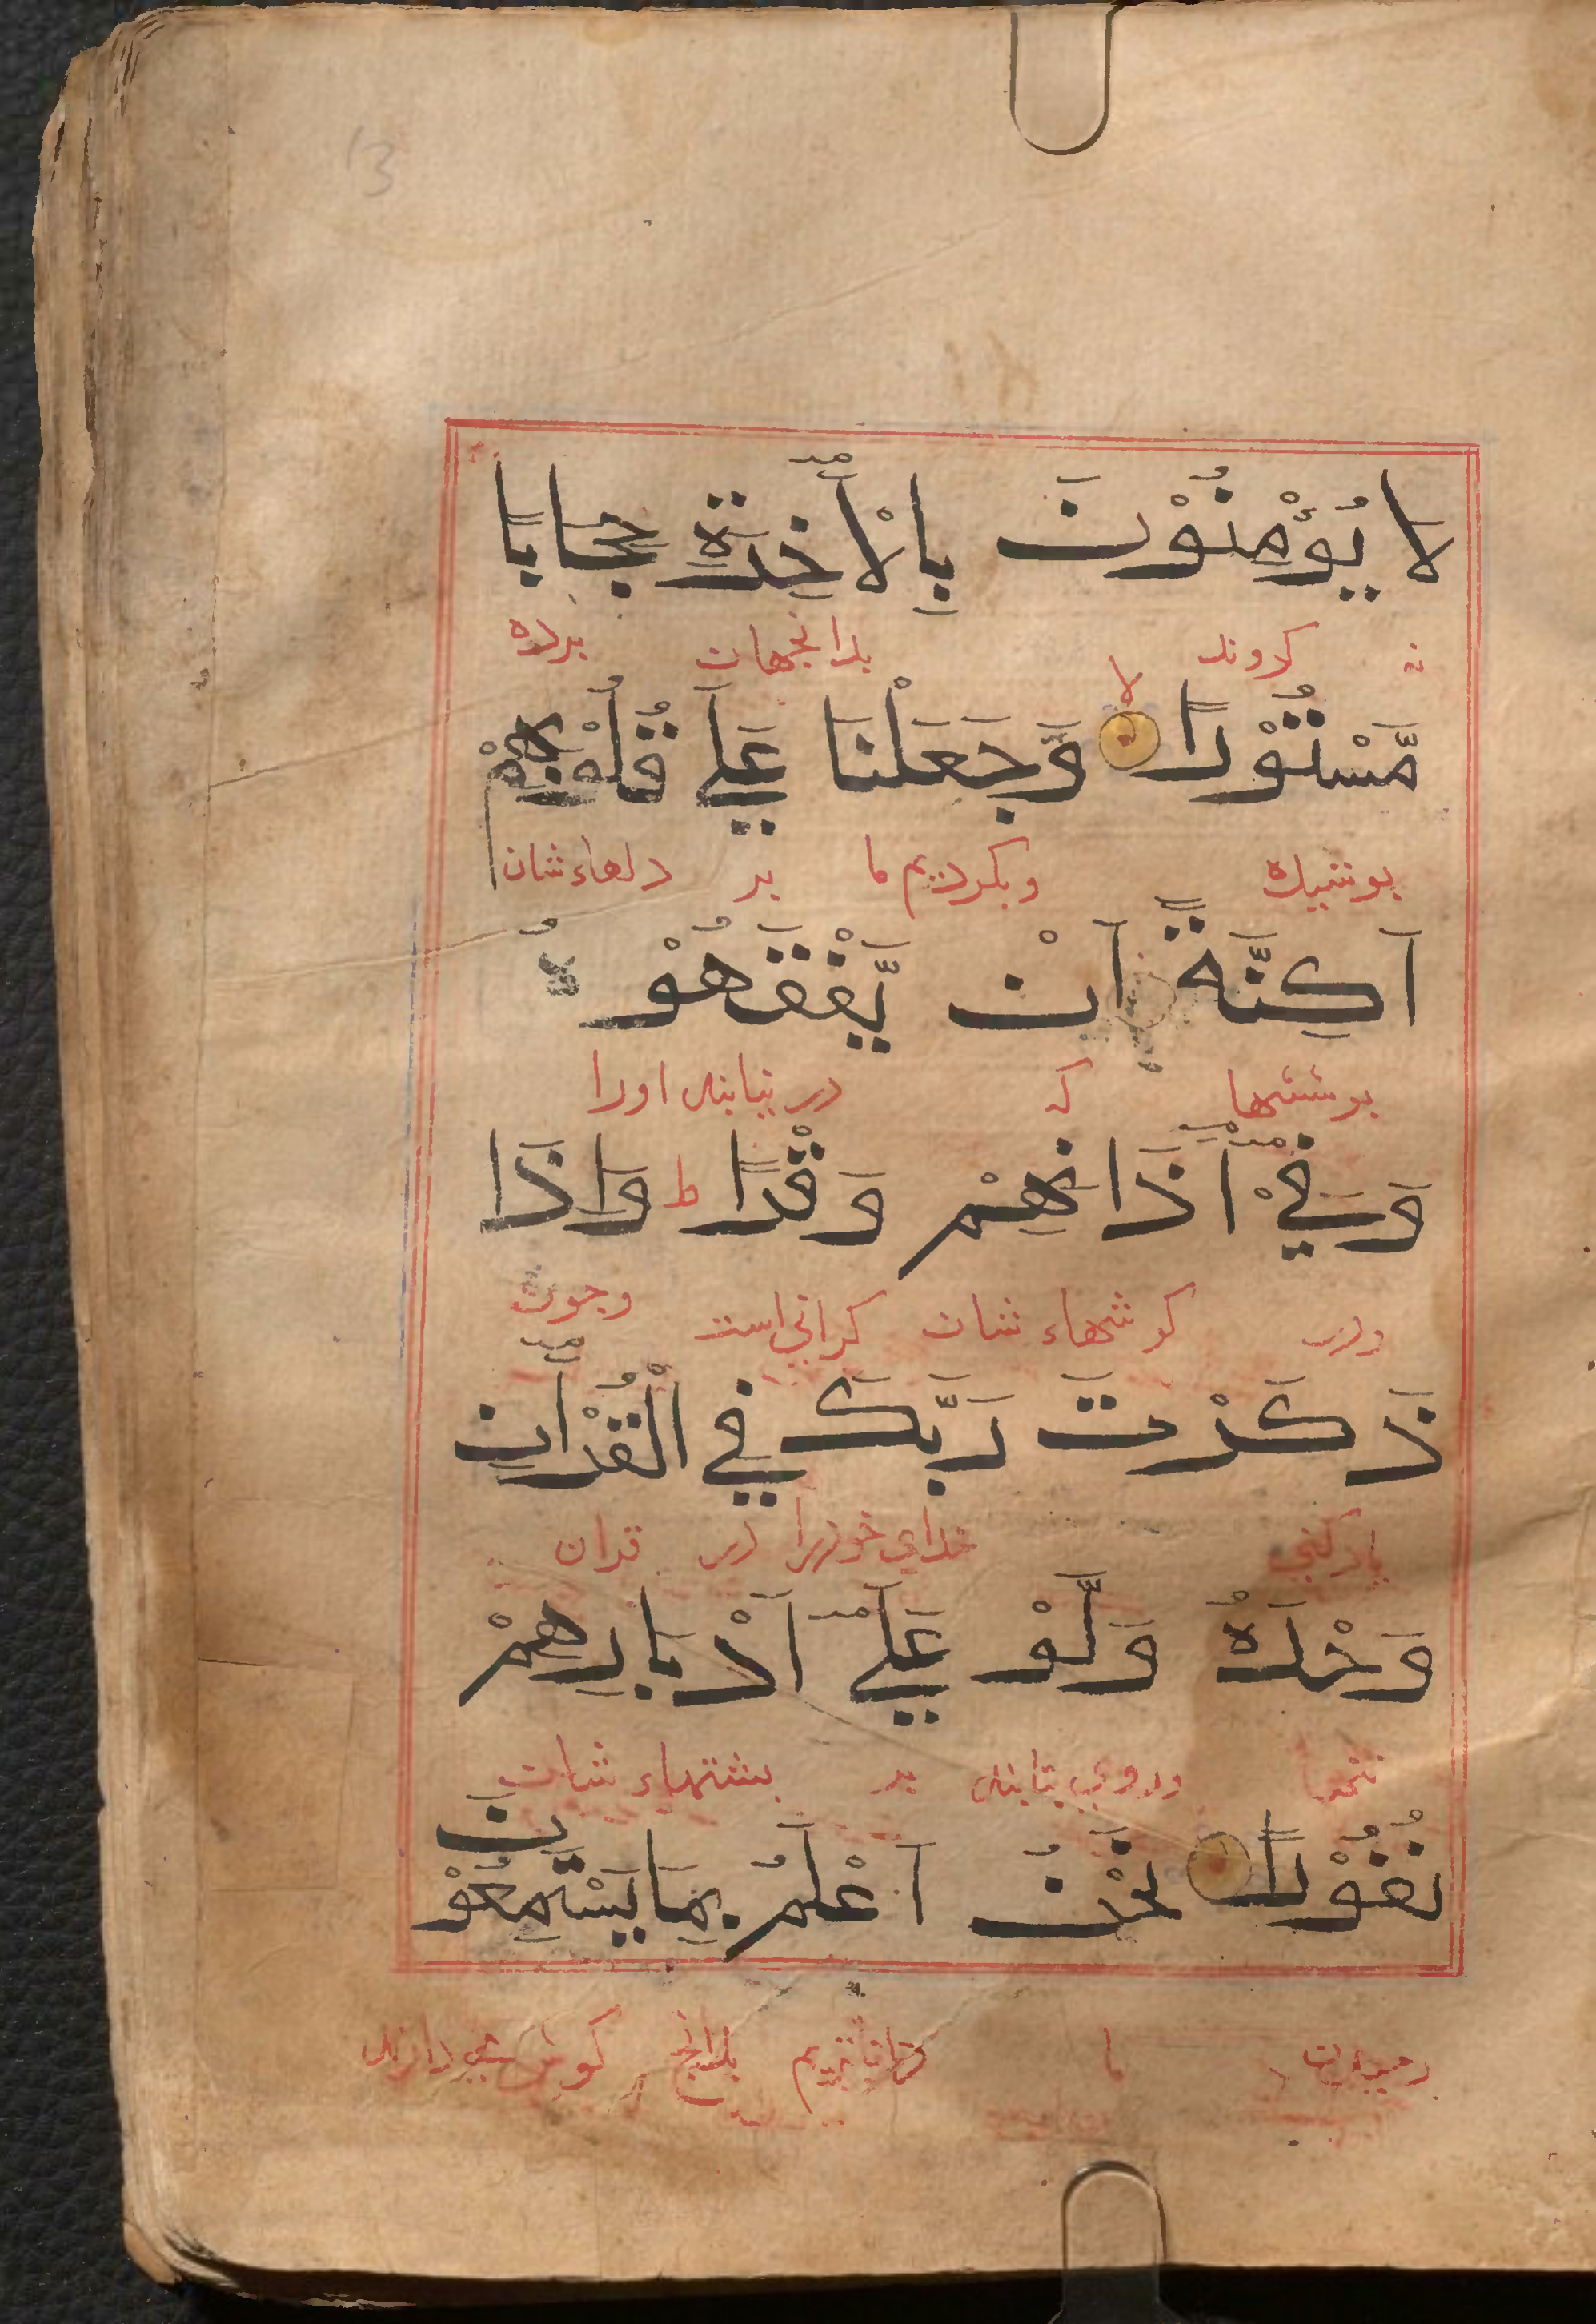 لَا يُؤْمِنُوْنَ بِالْأٓخِرَةِ حِجَابًا
نه كروند بدانجهان پرده
مَّسْتُوْرًا لا وَّجَعَلْنَا عَلٰي قُلُوْبِهِمْ
پوشيده وبكرديم ما بر دلهاء شان
اَكِنَّةً اَنْ يَّفْقَهُوْهُ
پوششها كه در نيابند اورا
وَفِيْ اٰذَانِهِمْ وَقْرًا ط وَاِذَا
ودر كوشهاء شان كراني است وچون
ذَكَرْتَ رَبَّكَ فِي الْقُرْاٰنِ
ياد كني خداي خود را در قران
وَحْدَهٗ وَلَّوْ عَلٰي اَدْبَارِهِمْ
تنها وروي بتابند بر پشتهاء شان
نُفُوْرًا نَحْنُ اَعْلَمُ بِمَا يَسْتَمِعُوْنَ
رميدن ما داناتريم بدانچ كوش مي دارند
13